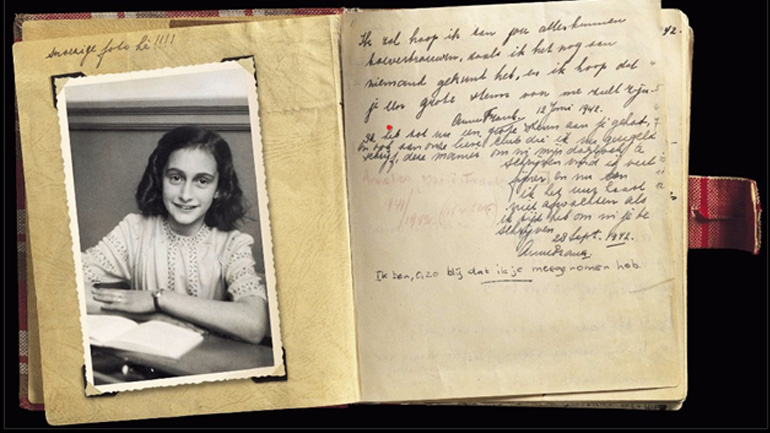 Snoezige foto hè!!!!
Ik zal hoop ik aan jou alles kunnen
toevertrouwen, zoals ik het nog aan
niemand gekund heb, en ik hoop dat
je een grote steun voor me zult zijn.
Anne Frank. 12 Juni 1942.
Ik heb tot nu een grote steun aan je gehad,
en ook aan onze lieve club die ik nu geregeld
schrijf, deze manier om in mijn dagboek te
schrijven vind ik veel
fijner en nu kan
ik het uur haast
niet afwachten als
ik tijd heb om in je te
schrijven.
28 Sept. 1942.
Anne Frank.
Ik ben, o, zo blij dat ik je meegenomen heb.
42.